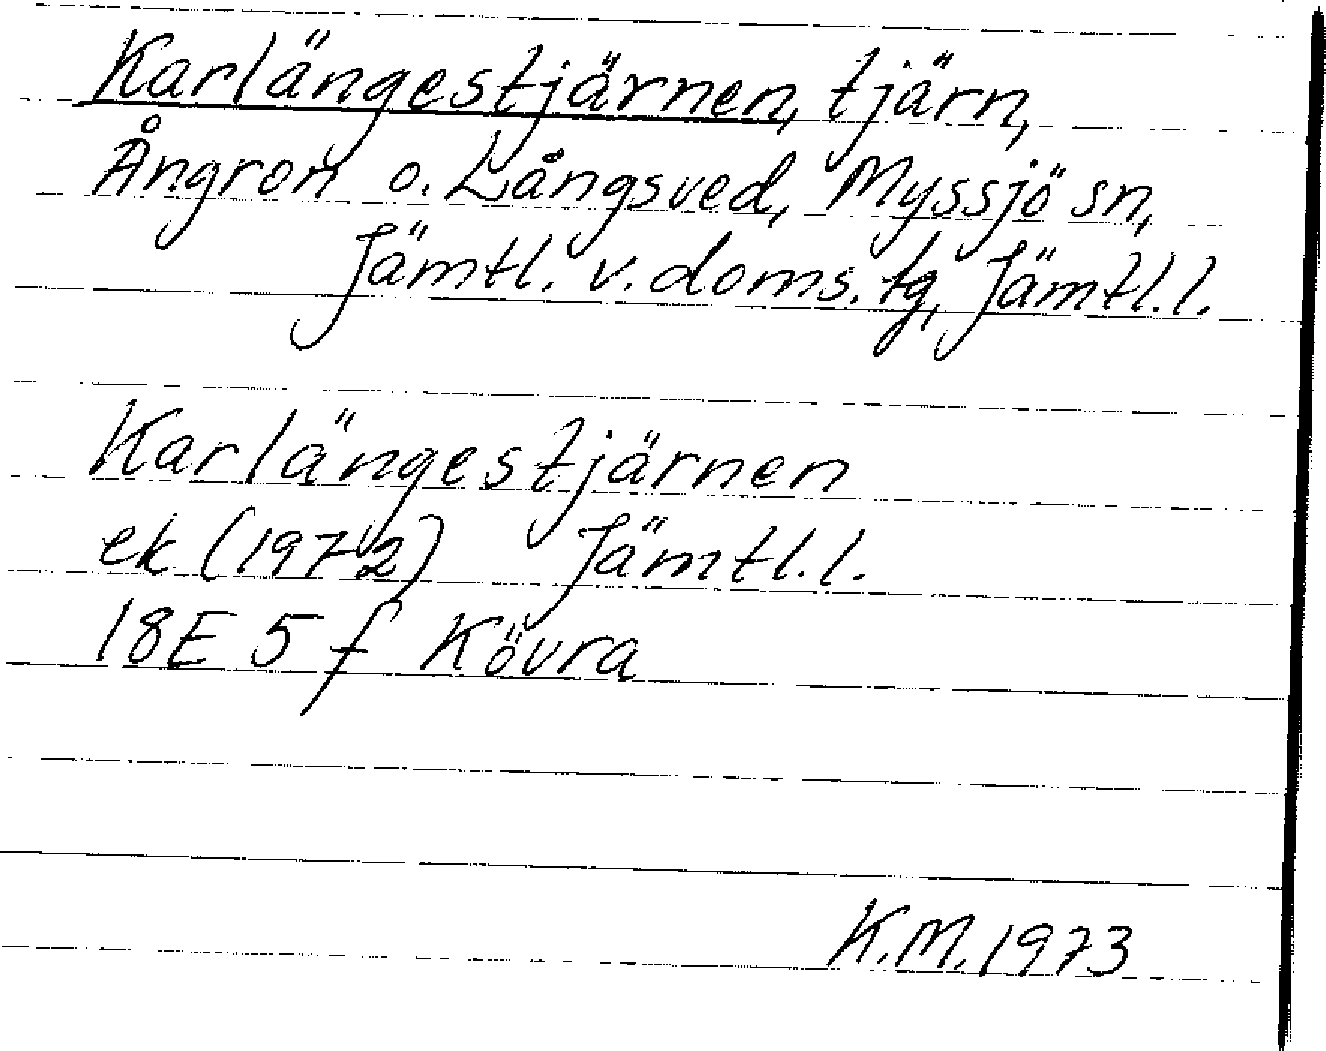 Karlängestjärnen, tjärn,
Ångron o. Långsved, Myssjö sn,
Jämtl. v. doms. tg, Jämtl. l.
Karlängestjärnen
ek (1972) Jämtl. l.
18E 5 f Kövra
K.M. 1973